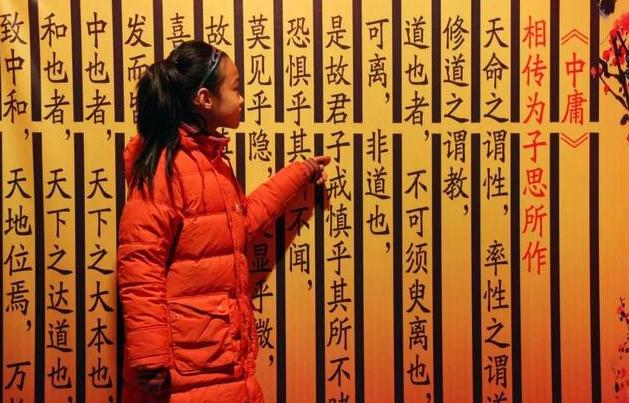 《中庸》
相传为子思所作
天命之谓性，率性之谓道
修道之谓教，
道也者，不可须臾离也，
可离，非道也，
是故君子戒慎乎其所不睹
恐惧乎其不闻，
莫见乎隐，显乎微，
故
喜
发而皆
中也者，天下之大本也，
和也者，天下之达道也，
致中和，天地位焉，万